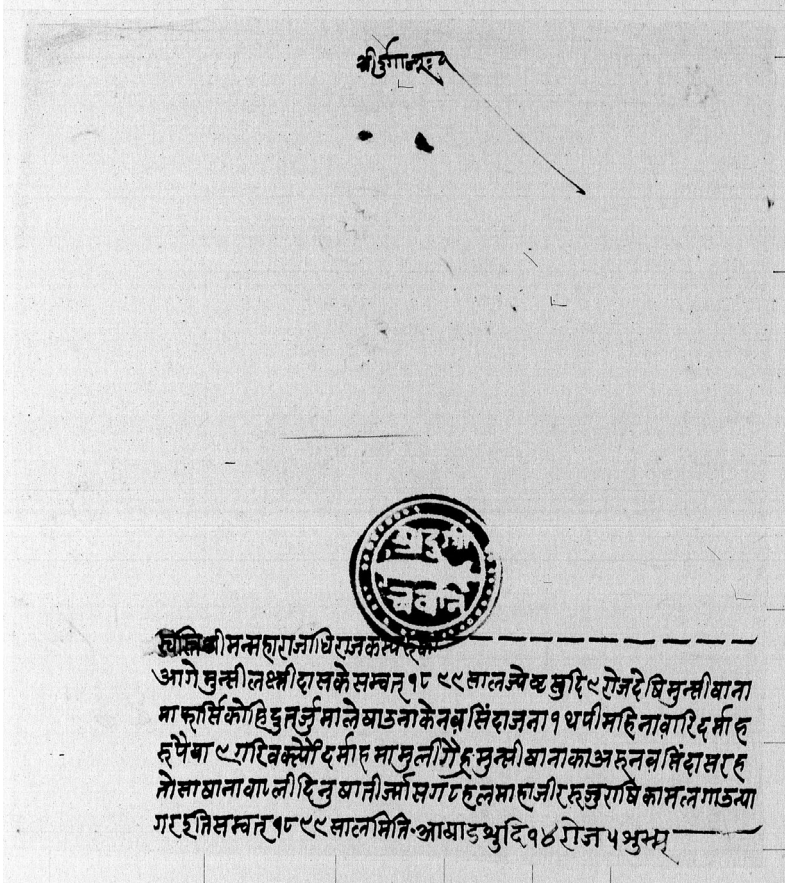 श्रीदुर्गाज्यू१
श्रीदुर्गा
भवानि
स्वस्तिश्रीमन्महाराजाधिराजकस्यरुक्का
आगेमुन्सीलक्ष्मीदासकेसम्वत्१८९९सालज्येष्ठसुदि९रोजदेषिमुन्सीषाना
माफार्सिकोहिदुतर्जुमालेषाउनाकेनवसिंदाजना१थपीमहिनावारिदर्माह
रुपैञा९गरिवक्स्यौंदर्माहमामुलीगैह्रमुन्सीषानाकाअरुनवसिंदासरह
तोसाषानावाटलीदिनुषातीर्ज्मासगटहलमाहाजीरहजुराषिकामलगाउन्या
गरइतिसम्वत्१८९९सालमितिआषाडशुदि१४रोज५शुभम्